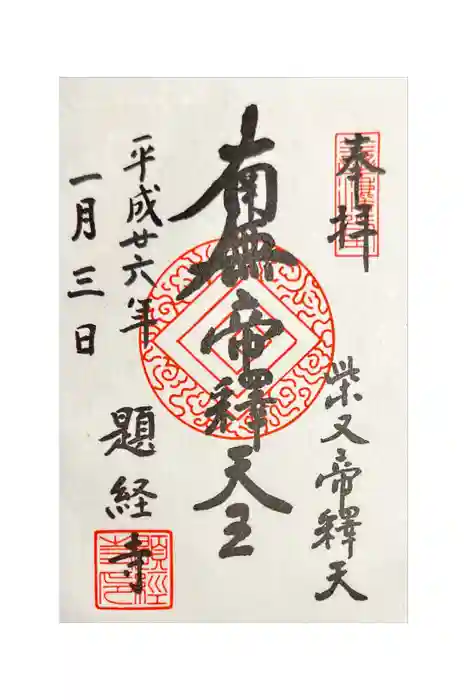 奉拝
柴又帝釋天
南無帝釋天王
平成廿六年
一月三日
題経寺